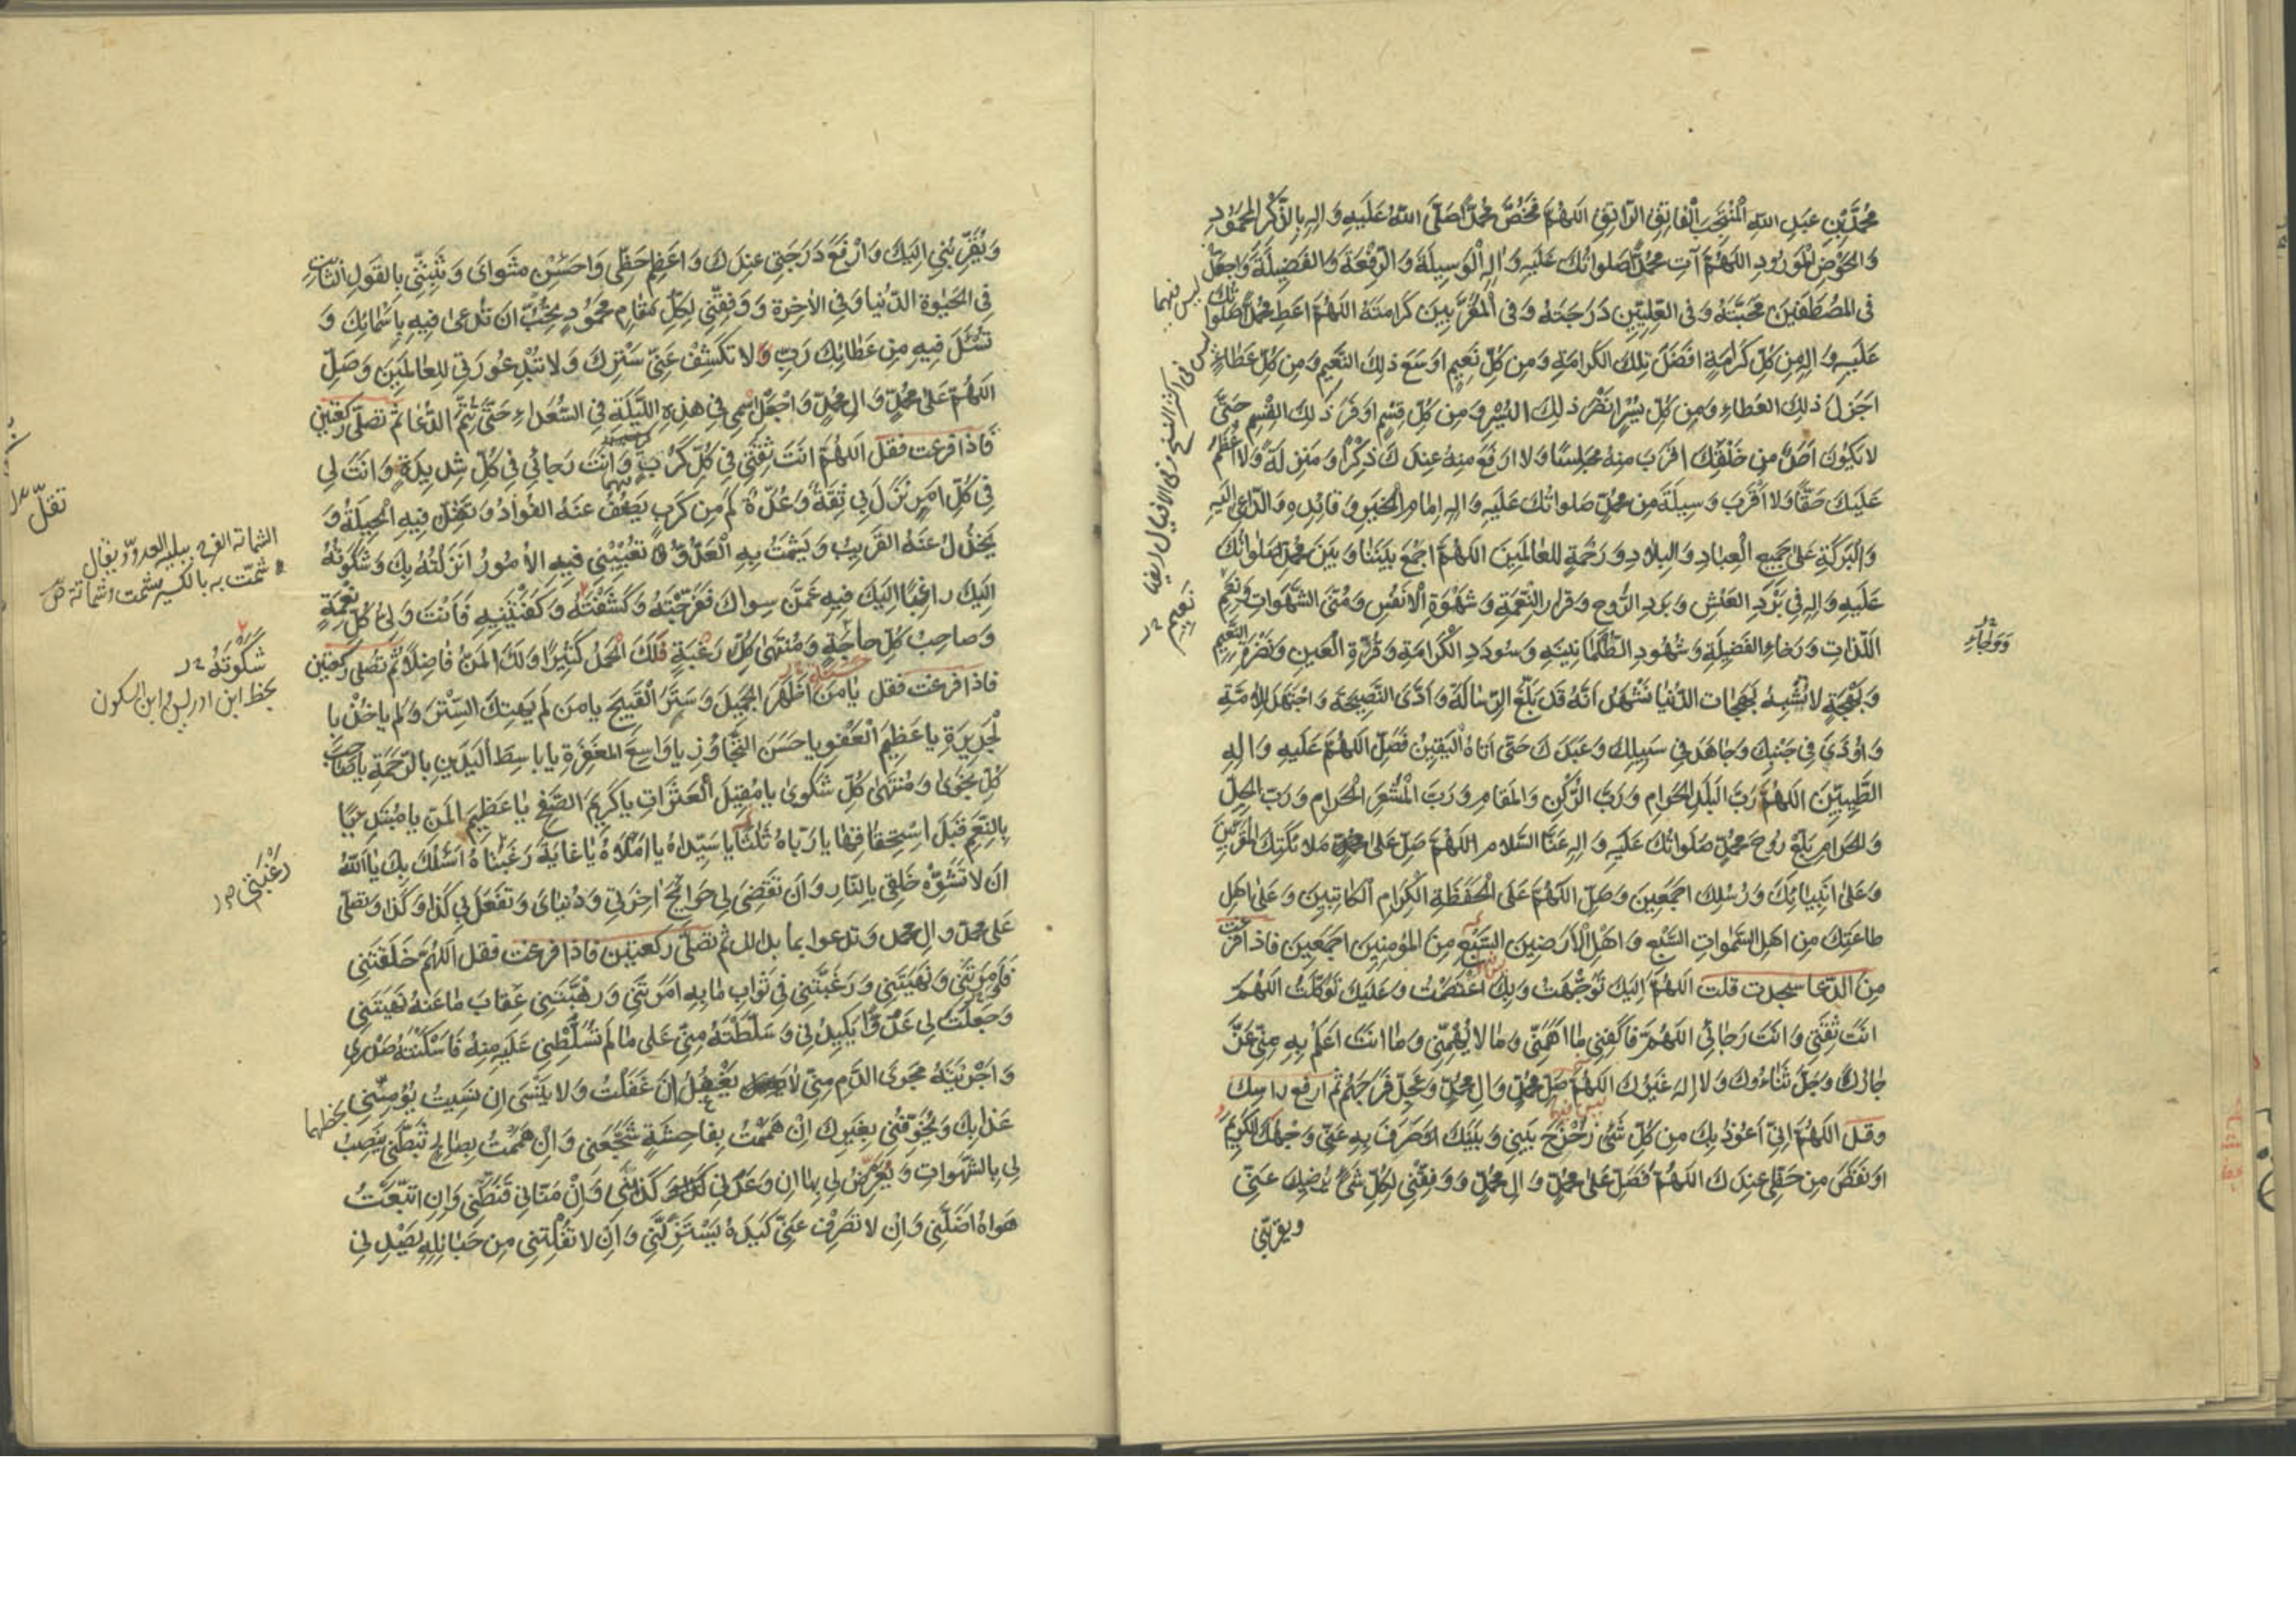 مُحَمَّدِ بْنِ عَبْدِ اللهِ الْمُنْتَجَبِ الْفاتِقِ الرّاتِقِ اللهُمَّ فَخُصَّ مُحَمَّدًا صَلَّى اللهُ عَلَيْهِ وَالِهِ بِالذِّكْرِ الْمَحْمُودِ
وَالْحَوْضِ الْمَوْرُودِ اللهُمَّ آتِ مُحَمَّدًا صَلَواتُكَ عَلَيْهِ وَالِهِ الْوَسِيلَةَ وَالرِّفْعَةَ وَالْفَضِيلَةَ وَاجْعَلْ
فِى الْمُصْطَفَيْنَ مَحَبَّتَهُ وَفِى الْعِلِّيِّينَ دَرَجَتَهُ وَفِى الْمُقَرَّبِينَ كَرامَتَهُ اللهُمَّ اعْطِ مُحَمَّدًا صَلَواتُكَ
عَلَيْهِ وَالِهِ مِنْ كُلِّ كَرامَةٍ افْضَلَ تِلْكَ الْكَرامَةِ وَمِنْ كُلِّ نَعِيمٍ اوْسَعَ ذلِكَ النَّعِيمِ وَمِنْ كُلِّ عَطاءٍ
اجْزَلَ ذلِكَ الْعَطاءِ وَمِنْ كُلِّ يُسْرٍ انْضَرَ ذلِكَ الْيُسْرِ وَمِنْ كُلِّ قِسْمٍ اوْفَرَ ذلِكَ الْقِسْمِ حَتّى
لا يَكُونَ احَدٌ مِنْ خَلْقِكَ اقْرَبَ مِنْهُ مَجْلِسًا وَلا ارْفَعَ مِنْهُ عِنْدَكَ ذِكْرًا وَمَنْزِلَةً وَلا اعْظَمَ
عَلَيْكَ حَقًّا وَلا اقْرَبَ وَسِيلَةً مِنْ مُحَمَّدٍ صَلَواتُكَ عَلَيْهِ وَالِهِ امامِ الْخَيْرِ وَقائِدِهِ وَالدّاعِى الَيْهِ
وَالْبَرَكَةِ عَلى جَمِيعِ الْعِبادِ وَالْبِلادِ وَرَحْمَةٍ لِلْعالَمِينَ اللهُمَّ اجْمَعْ بَيْنَنا وَبَيْنَ مُحَمَّدٍ صَلَواتُكَ
عَلَيْهِ وَالِهِ فِى بَرْدِ الْعَيْشِ وَبَرْدِ الرَّوْحِ وَقَرارِ النِّعْمَةِ وَشَهْوَةِ الْانْفُسِ وَمُنَى الشَّهَواتِ وَنِعَمِ
اللَّذّاتِ وَرَخاءِ الْفَضِيلَةِ وَشُهُودِ الطُّمَأْنِينَةِ وَسُودَدِ الْكَرامَةِ وَقُرَّةِ الْعَيْنِ وَنَضْرَةِ النَّعِيمِ
وَبَهْجَةٍ لا تُشْبِهُ بَهَجاتِ الدُّنْيا نَشْهَدُ انَّهُ قَدْ بَلَّغَ الرِّسالَةَ وَادَّى النَّصِيحَةَ وَاجْتَهَدَ لِلْامَّةِ
وَاوذِىَ فِى جَنْبِكَ وَجاهَدَ فِى سَبِيلِكَ وَعَبَدَكَ حَتّى اتاهُ الْيَقِينُ فَصَلِّ اللهُمَّ عَلَيْهِ وَالِهِ
الطَّيِّبِينَ اللهُمَّ رَبَّ الْبَلَدِ الْحَرامِ وَرَبَّ الرُّكْنِ وَالْمَقامِ وَرَبَّ الْمَشْعَرِ الْحَرامِ وَرَبَّ الْحِلِّ
وَالْحَرامِ بَلِّغْ رُوحَ مُحَمَّدٍ صَلَواتُكَ عَلَيْهِ وَالِهِ عَنَّا السَّلامَ اللهُمَّ صَلِّ عَلى مَلائِكَتِكَ الْمُقَرَّبِينَ
وَعَلى انْبِيائِكَ وَرُسُلِكَ اجْمَعِينَ وَصَلِّ اللهُمَّ عَلَى الْحَفَظَةِ الْكِرامِ الْكاتِبِينَ وَعَلى اهْلِ
طاعَتِكَ مِنْ اهْلِ السَّمَواتِ السَّبْعِ وَاهْلِ الْارَضِينَ السَّبْعِ مِنَ الْمُؤْمِنِينَ اجْمَعِينَ فاذا فرغت
مِنَ الدّعا سجدت قلت اللهُمَّ الَيْكَ تَوَجَّهْتُ وَبِكَ اعْتَصَمْتُ وَعَلَيْكَ تَوَكَّلْتُ اللهُمَّ
انْتَ ثِقَتِى وَانْتَ رَجائِى اللهُمَّ فَاكْفِنِى ما اهَمَّنِى وَما لا يُهِمُّنِى وَما انْتَ اعْلَمُ بِهِ مِنِّى عَزَّ
جارُكَ وَجَلَّ ثَناءُوكَ وَلا الهَ غَيْرُكَ اللهُمَّ صَلِّ مُحَمَّدٍ وَالِ مُحَمَّدٍ وَعَجِّلْ فَرَجَهُمْ ثم ارفع راسك
وقل اللهُمَّ انِّى اعُوذُ بِكَ مِنْ كُلِّ شَىْءٍ زَحْزَحَ بَيْنِى وَبَيْنَكَ اوْ صَرَفَ بِهِ عَنِّى وَجْهَكَ الْكَرِيمَ
اوْ نَقَصَ مِنْ حَظِّى عِنْدَكَ اللهُمَّ فَصَلِّ عَلى مُحَمَّدٍ وَالِ مُحَمَّدٍ وَوَفِّقْنِى لِكُلِّ شَىْءٍ يُرْضِيكَ عَنِّى
ويقربنى
ليس فيهما
نَعِيمِ
وَيُقَرِّبُنِى الَيْكَ وَارْفَعْ دَرَجَتِى عِنْدَكَ وَاعْظِمْ حَظِّى وَاحْسِنْ مَثْواىَ وَثَبِّتْنِى بِالْقَوْلِ الثّابِتِ
فِى الْحَيوةِ الدُّنْيا وَفِى الْاخِرَةِ وَوَفِّقْنِى لِكُلِّ مَقامٍ مَحْمُودٍ تُحِبُّ انْ تُدْعى فِيهِ بِاسْمائِكَ وَ
تُسْئَلَ فِيهِ مِنْ عَطائِكَ رَبِّ وَلا تَكْشِفْ عَنِّى سَتْرَكَ وَلا تُبْدِ عَوْرَتِى لِلْعالَمِينَ وَصَلِّ
اللهُمَّ عَلى مُحَمَّدٍ وَالِ مُحَمَّدٍ وَاجْعَلْ اسْمِى فِى هذِهِ اللَّيْلَةِ فِى السُّعَداءِ حَتّى يُتِمَّ الدُّعا ثم تصلّى ركعتين
فَاذا فرغت فقل اللهُمَّ انْتَ ثِقَتِى فِى كُلِّ كَرْبٍ وَانْتَ رَجائِى فِى كُلِّ شِدِيدَةٍ وَانْتَ لِى
فِى كُلِّ امْرٍ نَزَلَ بِى ثِقَةٌ وَعُدَّةٌ كَمْ مِنْ كَرْبٍ يَضْعُفُ عَنْهُ الْفُؤادُ وَتَقِلُّ فِيهِ الْحِيلَةُ وَ
يَخْذُلُ عَنْهُ الْقَرِيبُ وَيَشْمَتُ بِهِ الْعَدُوُّ وَتُعْيِينِى فِيهِ الْامُورُ انْزَلْتُهُ بِكَ وَشَكَوْتُهُ
الَيْكَ راغِبًا الَيْكَ فِيهِ عَمَّنْ سِواكَ فَفَرَّجْتَهُ وَكَشَفْتَهُ وَكَفَيْتَنِيهِ فَانْتَ وَلِىُّ كُلِّ نِعْمَةٍ
وَصاحِبُ كُلِّ حاجَةٍ وَمُنْتَهى كُلِّ رَغْبَةٍ فَلَكَ الْحَمْدُ كَثِيرًا وَلَكَ الْمَنُّ فاضِلًا ثم تصلى ركعتين
فاذا فرغت فقل يا مَنْ اظْهَرَ الْجَمِيلَ وَسَتَرَ الْقَبِيحَ يا مَنْ لَمْ يَهْتِكِ السِّتْرَ وَلَمْ ياخُذْ بِا
لْجَرِيرَةِ يا عَظِيمَ الْعَفْوِ يا حَسَنَ التَّجاوُزِ يا واسِعَ الْمَغْفِرَةِ يا باسِطَ الْيَدَيْنِ بِالرَّحْمَةِ يا صاحِبَ
كُلِّ نَجْوى وَمُنْتَهى كُلِّ شَكْوى يا مُقِيلَ الْعَثَراتِ يا كَرِيمَ الصَّفْحِ يا عَظِيمَ الْمَنِّ يا مُبْتَدِئًا
بِالنِّعَمِ قَبْلَ اسْتِحْقاقِها يا رَبّاهُ ثَلثًا يا سَيِّداهُ يا امَلاهُ يا غايَةَ رَغْبَتاهُ اسْئَلُكَ بِكَ يا اللهُ
انْ لا تُشَوِّهَ خَلْقِى بِالنّارِ وَانْ تَقْضِىَ لِى حَوائِجَ اخِرَتِى وَدُنْياىَ وَتَفْعَلَ بِى كَذا وَكَذا وَتصلى
عَلى محمد وال محمد وَتدعوا بما بدا لك ثم تصلّى ركعتين فاذا فرغت فقل اللهُمَّ خَلَقْتَنِى
فَامَرْتَنِى وَنَهَيْتَنِى وَرَغَّبْتَنِى فِى ثَوابِ ما بِهِ امَرْتَنِى وَرَهَّبْتَنِى عِقابَ ما عَنْهُ نَهَيْتَنِى
وَجَعَلْتَ لِى عَدُوًّا يَكِيدُنِى وَسَلَّطْتَهُ مِنِّى عَلى ما لَمْ تُسَلِّطْنِى عَلَيْهِ مِنْهُ فَاسْكَنْتَهُ صَدْرِى
وَاجْرَيْتَهُ مَجْرَى الدَّمِ مِنِّى لا يَغْفُلُ انْ غَفَلْتُ وَلا يَنْسَى انْ نَسِيتُ يُؤْمِنُنِى
عَذابَكَ وَيُخَوِّفُنِى بِغَيْرِكَ انْ هَمَمْتُ بِفاحِشَةٍ شَجَّعَنِى وَانْ هَمَمْتُ بِصالِحٍ ثَبَّطَنِى يَنْصِبُ
لِى بِالشَّهَواتِ وَيُعَرِّضُ لِى بِها انْ وَعَدَنِى كَذَبَنِى وَانْ مَنّانِى قَنَّطَنِى وَانِ اتَّبَعْتُ
هَواهُ اضَلَّنِى وَانْ لا تَصْرِفْ عَنِّى كَيْدَهُ يَسْتَزِلَّنِى وَانْ لا تُفْلِتْنِى مِنْ حَبائِلِهِ يَصُدَّنِى
الشماتة الفرح ببلية العدو ويقال
شمت به بالكسر يشمت شماتة ص
شَكَوْتُهُ
بخط ابن ادريس وابن السكون
رَغْبَتِى
بخطهما